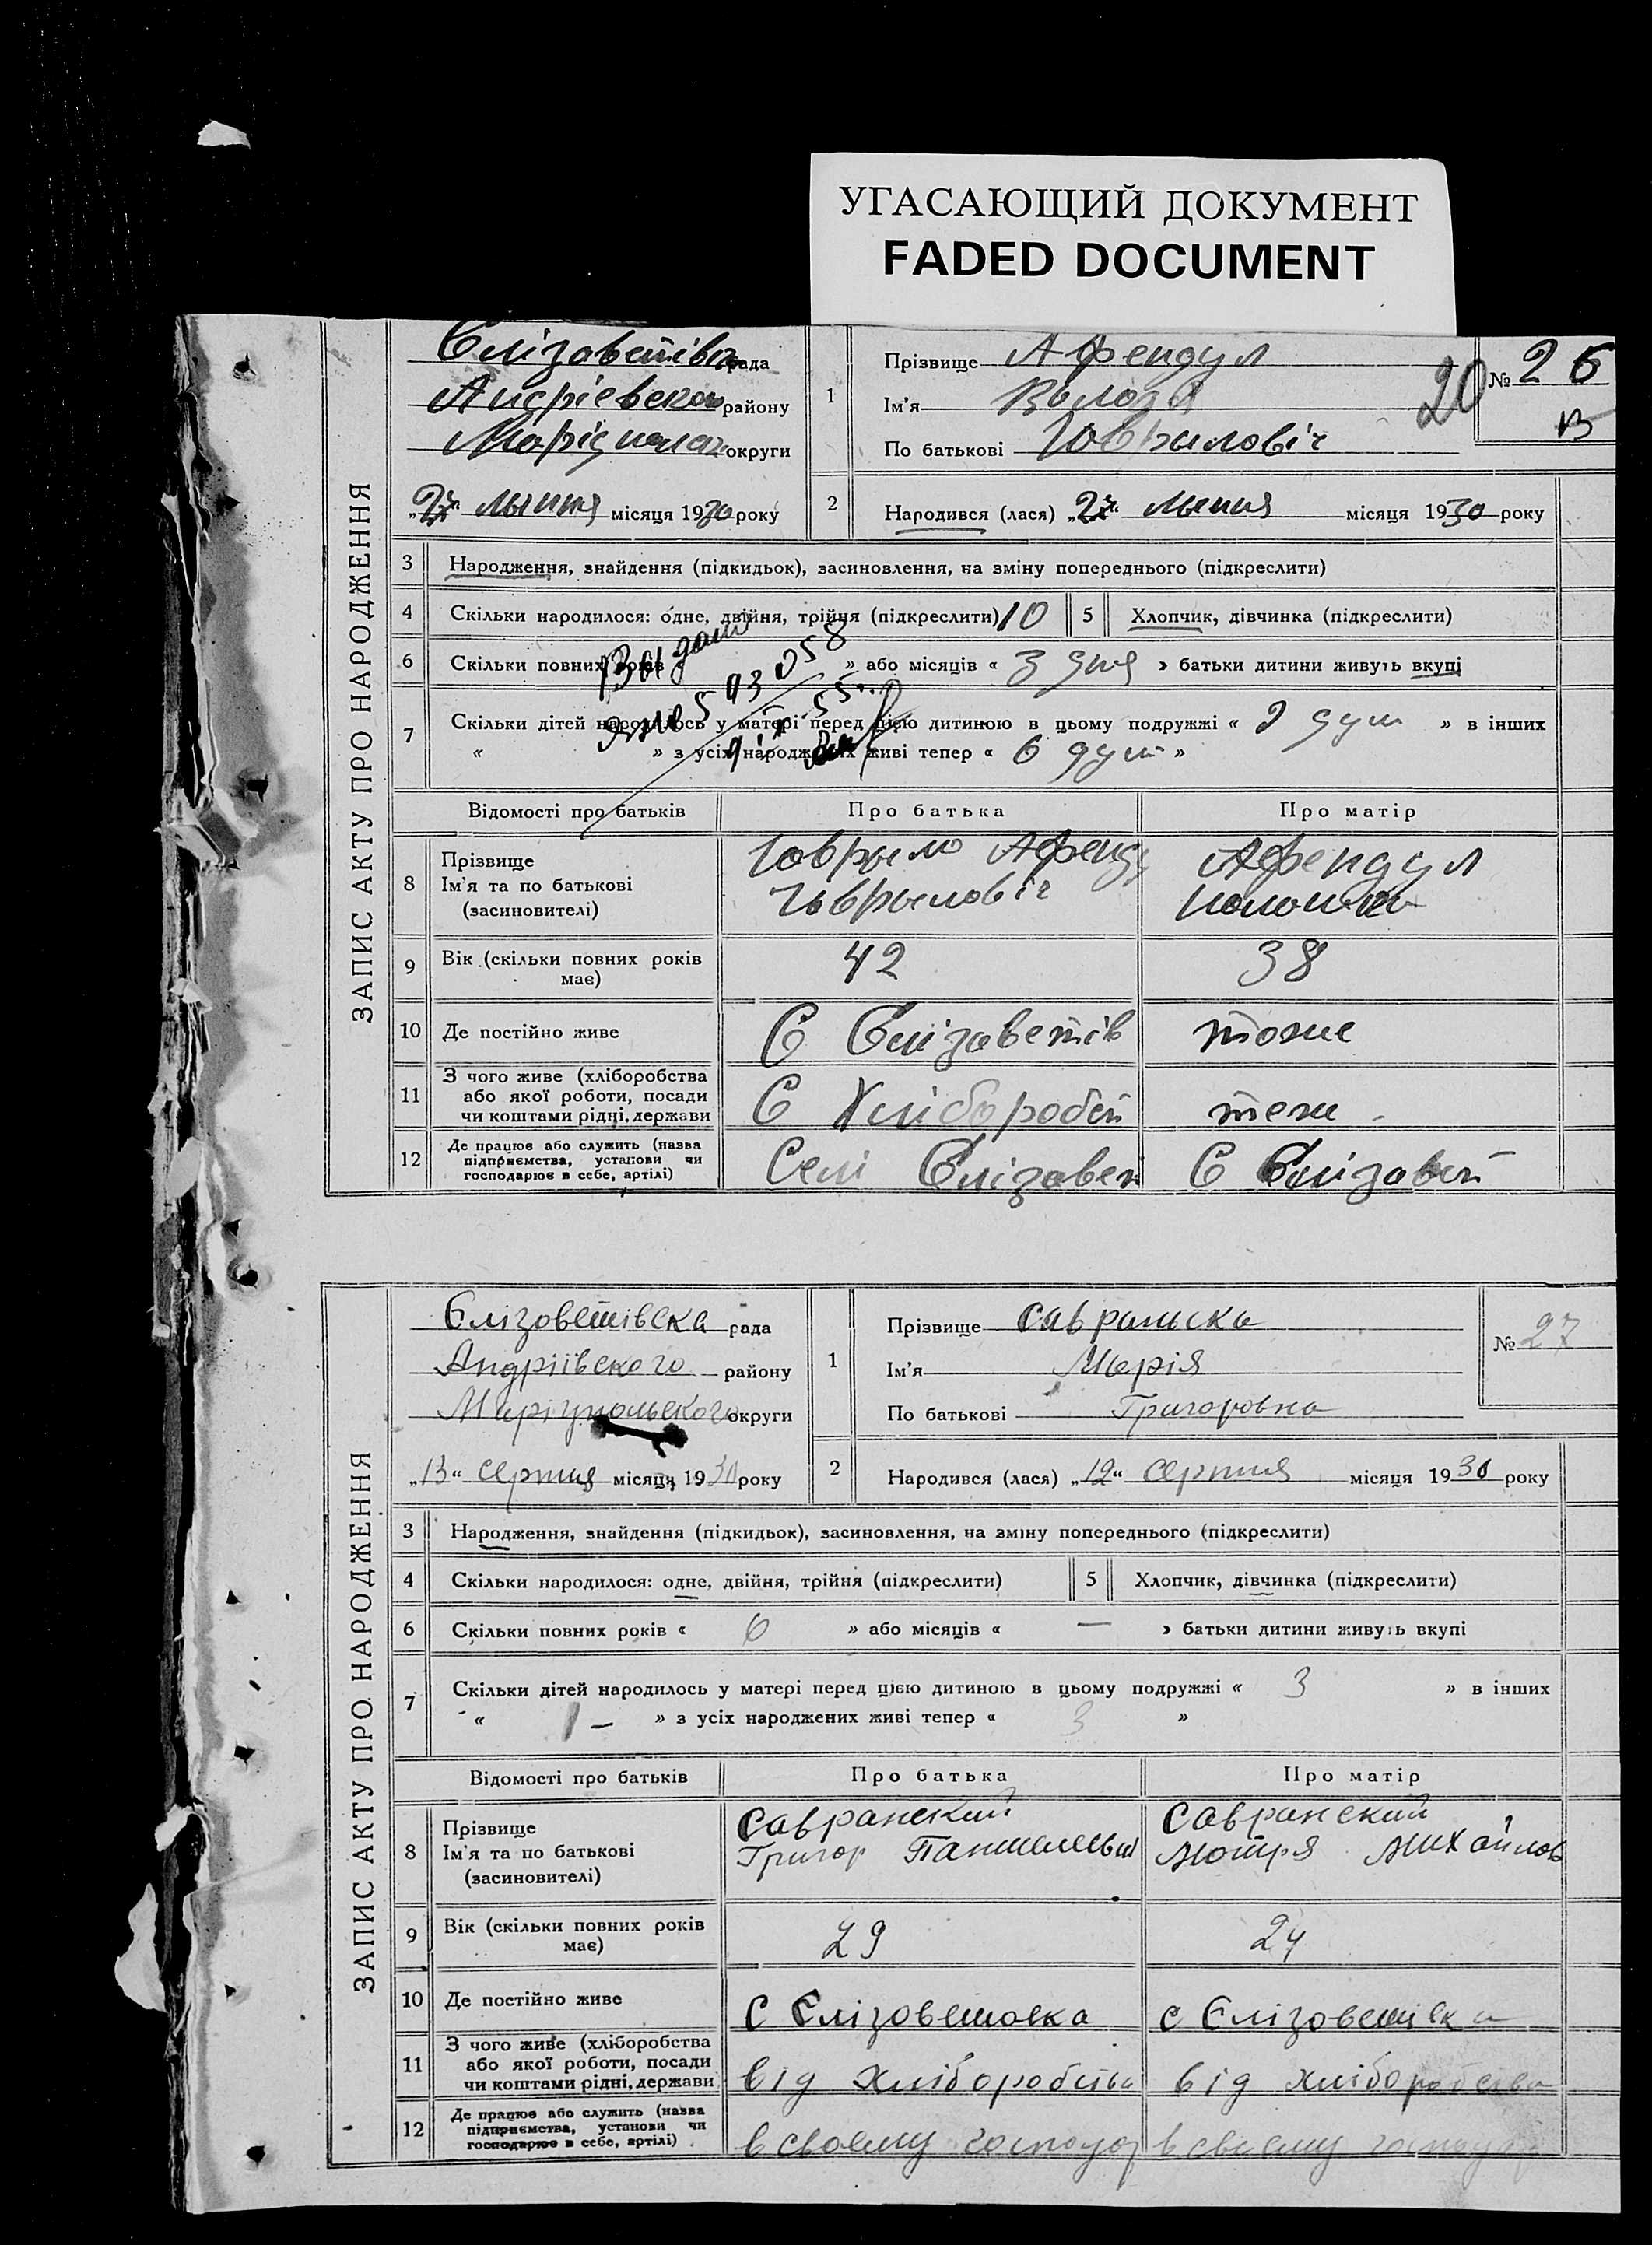 УГАСАЮЩИЙ ДОКУМЕНТ
FADED DOCUMENT
ЗАПИС АКТУ ПРО НАРОДЖЕННЯ
Єлізаветівка рада
району
округи
липня місяця 1930 року
1
Прізвище Афендул
Ім'я
По батькові Гаврилович
20
№ 26
2
Народився (лася) липня місяця 1930 року
3 Народження, знайдення (підкидьок), засиновлення, на зміну попереднього (підкреслити)
4 Скільки народилося: одне, двійня, трійня (підкреслити) 10
5 Хлопчик, дівчинка (підкреслити)
6 Скільки повних років « » або місяців « 3 дня » батьки дитини живуть вкупі
7 Скільки дітей народилось у матері перед цією дитиною в цьому подружжі « 9 душ » в інших
« » з усіх народжених живі тепер « 6 душ »
Відомості про батьків
Про батька
Про матір
8 Прізвище
Ім'я та по батькові
(засиновителі)
Гаврыло Афенду
Гаврыловіч
Афендул
9 Вік (скільки повних років
має)
42
38
10 Де постійно живе
С Єлізаветів
тоже
11 З чого живе (хліборобства
або якої роботи, посади
чи коштами рідні, держави
С Хліборобст
теж
12 Де працює або служить (назва
підприємства, установи чи
господарює в себе, артілі)
Селі Єлізавет
С Єлізавет
ЗАПИС АКТУ ПРО НАРОДЖЕННЯ
Єлізоветівска рада
Андріївского району
Маріупольского округи
„13“ серпня місяця 1930 року
1
Прізвище Савранська
Ім'я Марія
По батькові Григоровна
№ 27
2
Народився (лася) „12“ серпня місяця 1930 року
3 Народження, знайдення (підкидьок), засиновлення, на зміну попереднього (підкреслити)
4 Скільки народилося: одне, двійня, трійня (підкреслити)
5 Хлопчик, дівчинка (підкреслити)
6 Скільки повних років « 0 » або місяців « — » батьки дитини живуть вкупі
7 Скільки дітей народилось у матері перед цією дитиною в цьому подружжі « 3 » в інших
« — » з усіх народжених живі тепер « 3 »
Відомості про батьків
Про батька
Про матір
8 Прізвище
Ім'я та по батькові
(засиновителі)
Савранский
Григор
Савранский
Мотря Михайлов
9 Вік (скільки повних років
має)
29
24
10 Де постійно живе
С Єлізоветовка
с Єлізоветівка
11 З чого живе (хліборобства
або якої роботи, посади
чи коштами рідні, держави
від хліборобства
від хліборобства
12 Де працює або служить (назва
підприємства, установи чи
господарює в себе, артілі)
в своєму господар
в своєму господар